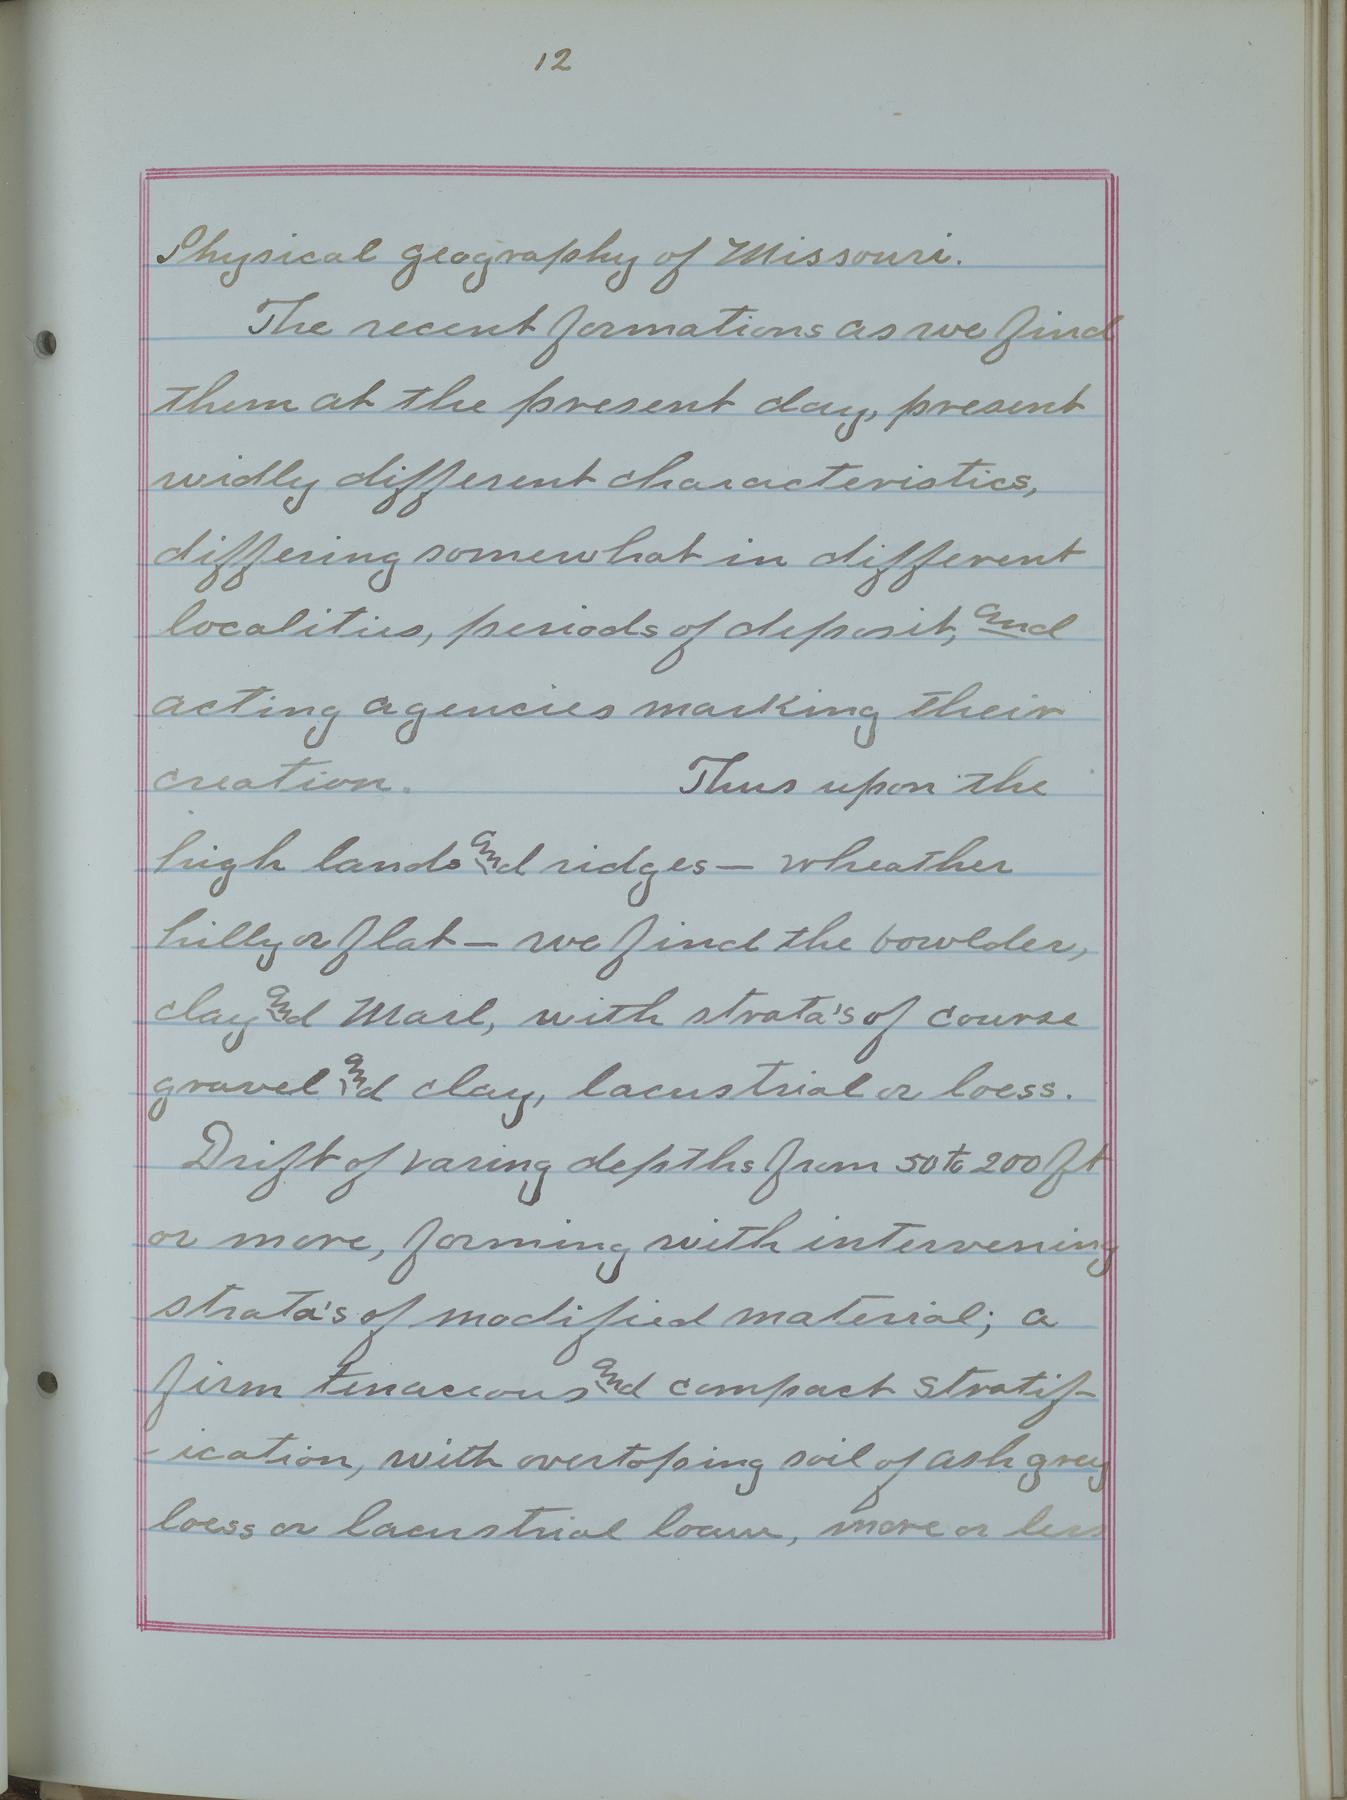 12
Physical geography of Missouri.
The recent formations as we find
them at the present day, present
widly different characteristics,
differing somewhat in different
localities, periods of deposit, and
acting agencies marking their
creation. Thus upon the
high lands and ridges — wheather
hilly or flat — we find the bowlder,
clay and Marl, with strata's of course
gravel and clay, lacustrial or loess.
Drift of varing depths from 50 to 200 ft
or more, forming with intervening
strata's of modified material; a
firm tenaceous and compact stratif-
-ication, with overtoping soil of ash gray
loess or lacustrial loam, more or less